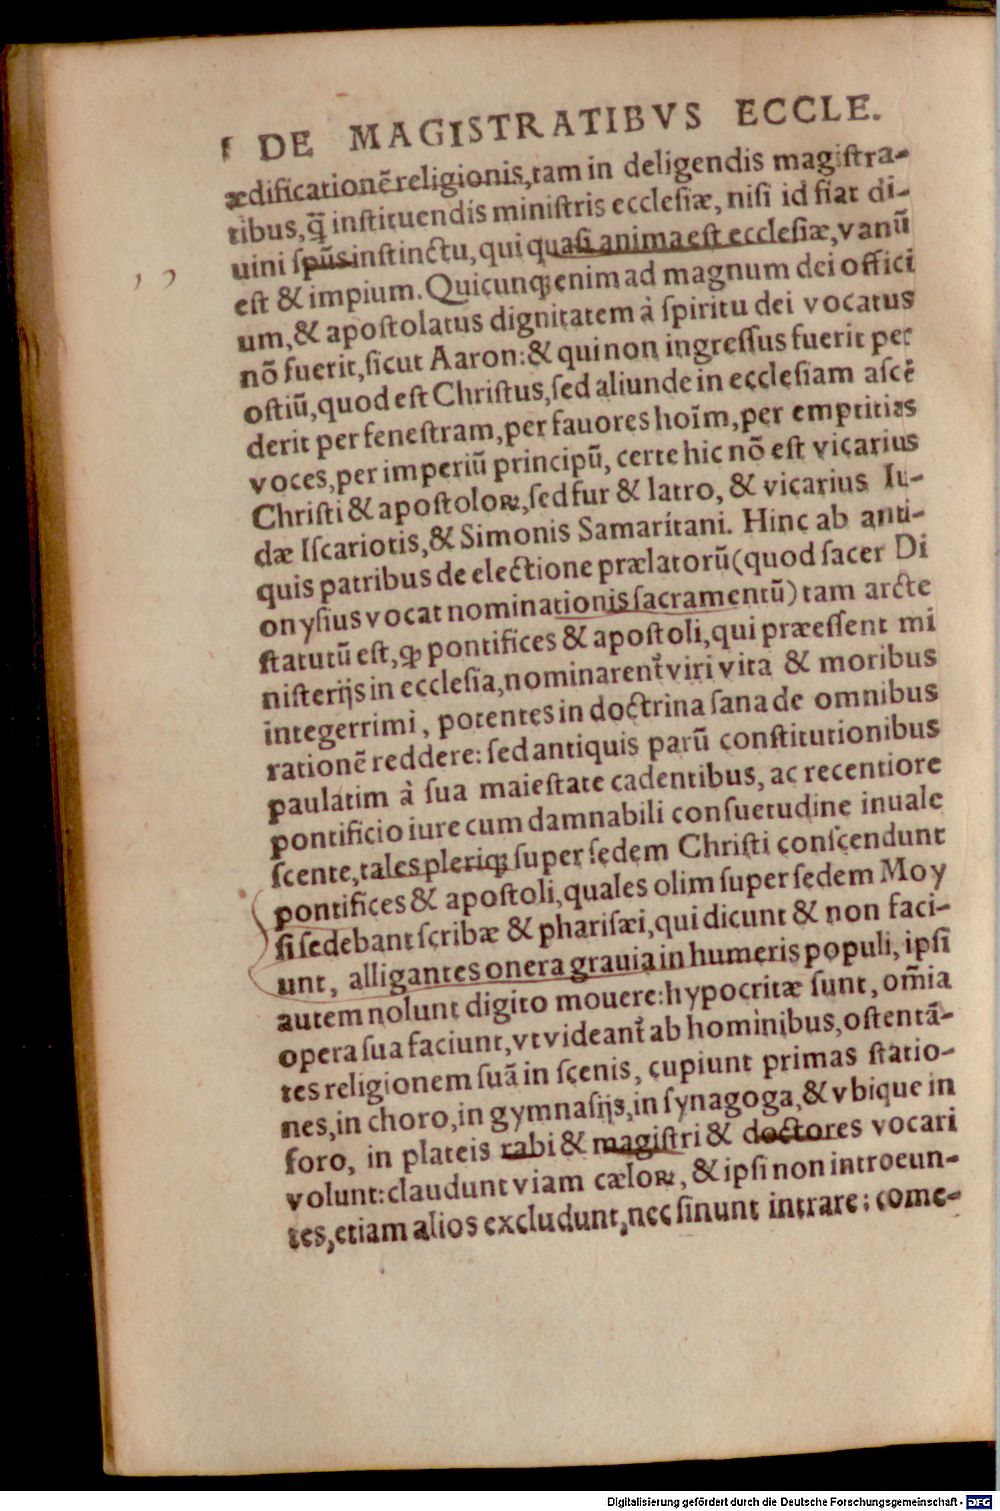 DE MAGISTRATIBVS ECCLE.
ædificationē religionis, tam in deligendis magistra-
tibus, q̃ instituendis ministris ecclesiæ, nisi id fiat di-
uini spūs instinctu, qui quasi anima est ecclesiæ, vanū
est & impium. Quicunqꝫ enim ad magnum dei offici
um, & apostolatus dignitatem à spiritu dei vocatus
nō fuerit, sicut Aaron: & qui non ingressus fuerit per
ostiū, quod est Christus, sed aliunde in ecclesiam ascē
derit per fenestram, per fauores hoīm, per emptitias
voces, per imperiū principū, certe hic nō est vicarius
Christi & apostoloꝝ, sed fur & latro, & vicarius Iu-
dæ Iscariotis, & Simonis Samaritani. Hinc ab anti-
quis patribus de electione prælatorū (quod sacer Di
onysius vocat nominationis sacramentū) tam arcte
statutū est, ꝙ pontifices & apostoli, qui præessent mi
nisterijs in ecclesia, nominarent̃ viri vita & moribus
integerrimi, potentes in doctrina sana de omnibus
rationē reddere: sed antiquis parū constitutionibus
paulatim à sua maiestate cadentibus, ac recentiore
pontificio iure cum damnabili consuetudine inuale
scente, tales pleriqꝫ super sedem Christi conscendunt
pontifices & apostoli, quales olim super sedem Moy
si sedebant scribæ & pharisæi, qui dicunt & non faci-
unt, alligantes onera grauia in humeris populi, ipsi
autem nolunt digito mouere: hypocritæ sunt, om̄ia
opera sua faciunt, vt videant̃ ab hominibus, ostentā-
tes religionem suā in scenis, cupiunt primas statio-
nes, in choro, in gymnasijs, in synagoga, & vbique in
foro, in plateis rabi & magistri & doctores vocari
volunt: claudunt viam cæloꝝ, & ipsi non introeun-
tes, etiam alios excludunt, nec sinunt intrare: come-
Digitalisierung gefördert durch die Deutsche Forschungsgemeinschaft - DFG